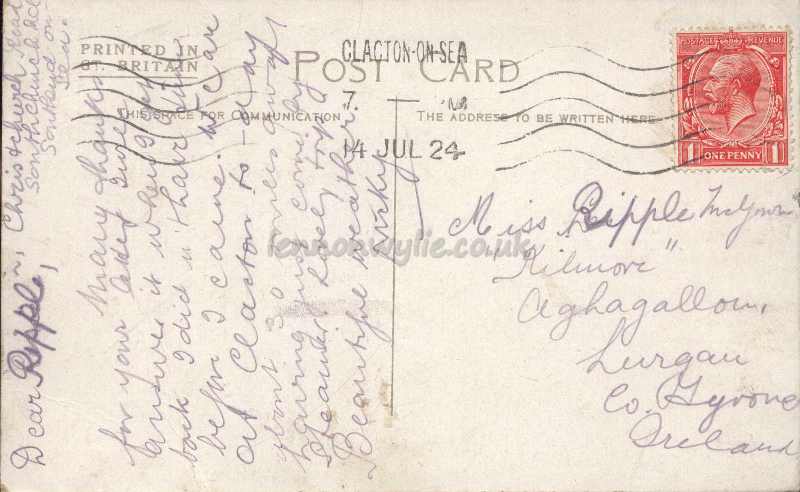 PRINTED IN
GT. BRITAIN
POST CARD
THIS SPACE FOR COMMUNICATION
THE ADDRESS TO BE WRITTEN HERE
CLACTON-ON-SEA
7. PM
14 JUL 24
POSTAGE REVENUE
1 ONE PENNY 1
Christchurch Road
Southchurch
Southend on
Sea
Dear Ripple,
Many thanks
for your letter I will
answer it when I get
back I did n't have time
before I came. We are
at Clacton to-day
about 30 miles away
having come by
steamer. Lovely trip
Beautiful weather
Vicky
Miss Ripple McGown
"Kilmore"
Aghagallon,
Lurgan
Co. Tyrone
Ireland
lennonwylie.co.uk